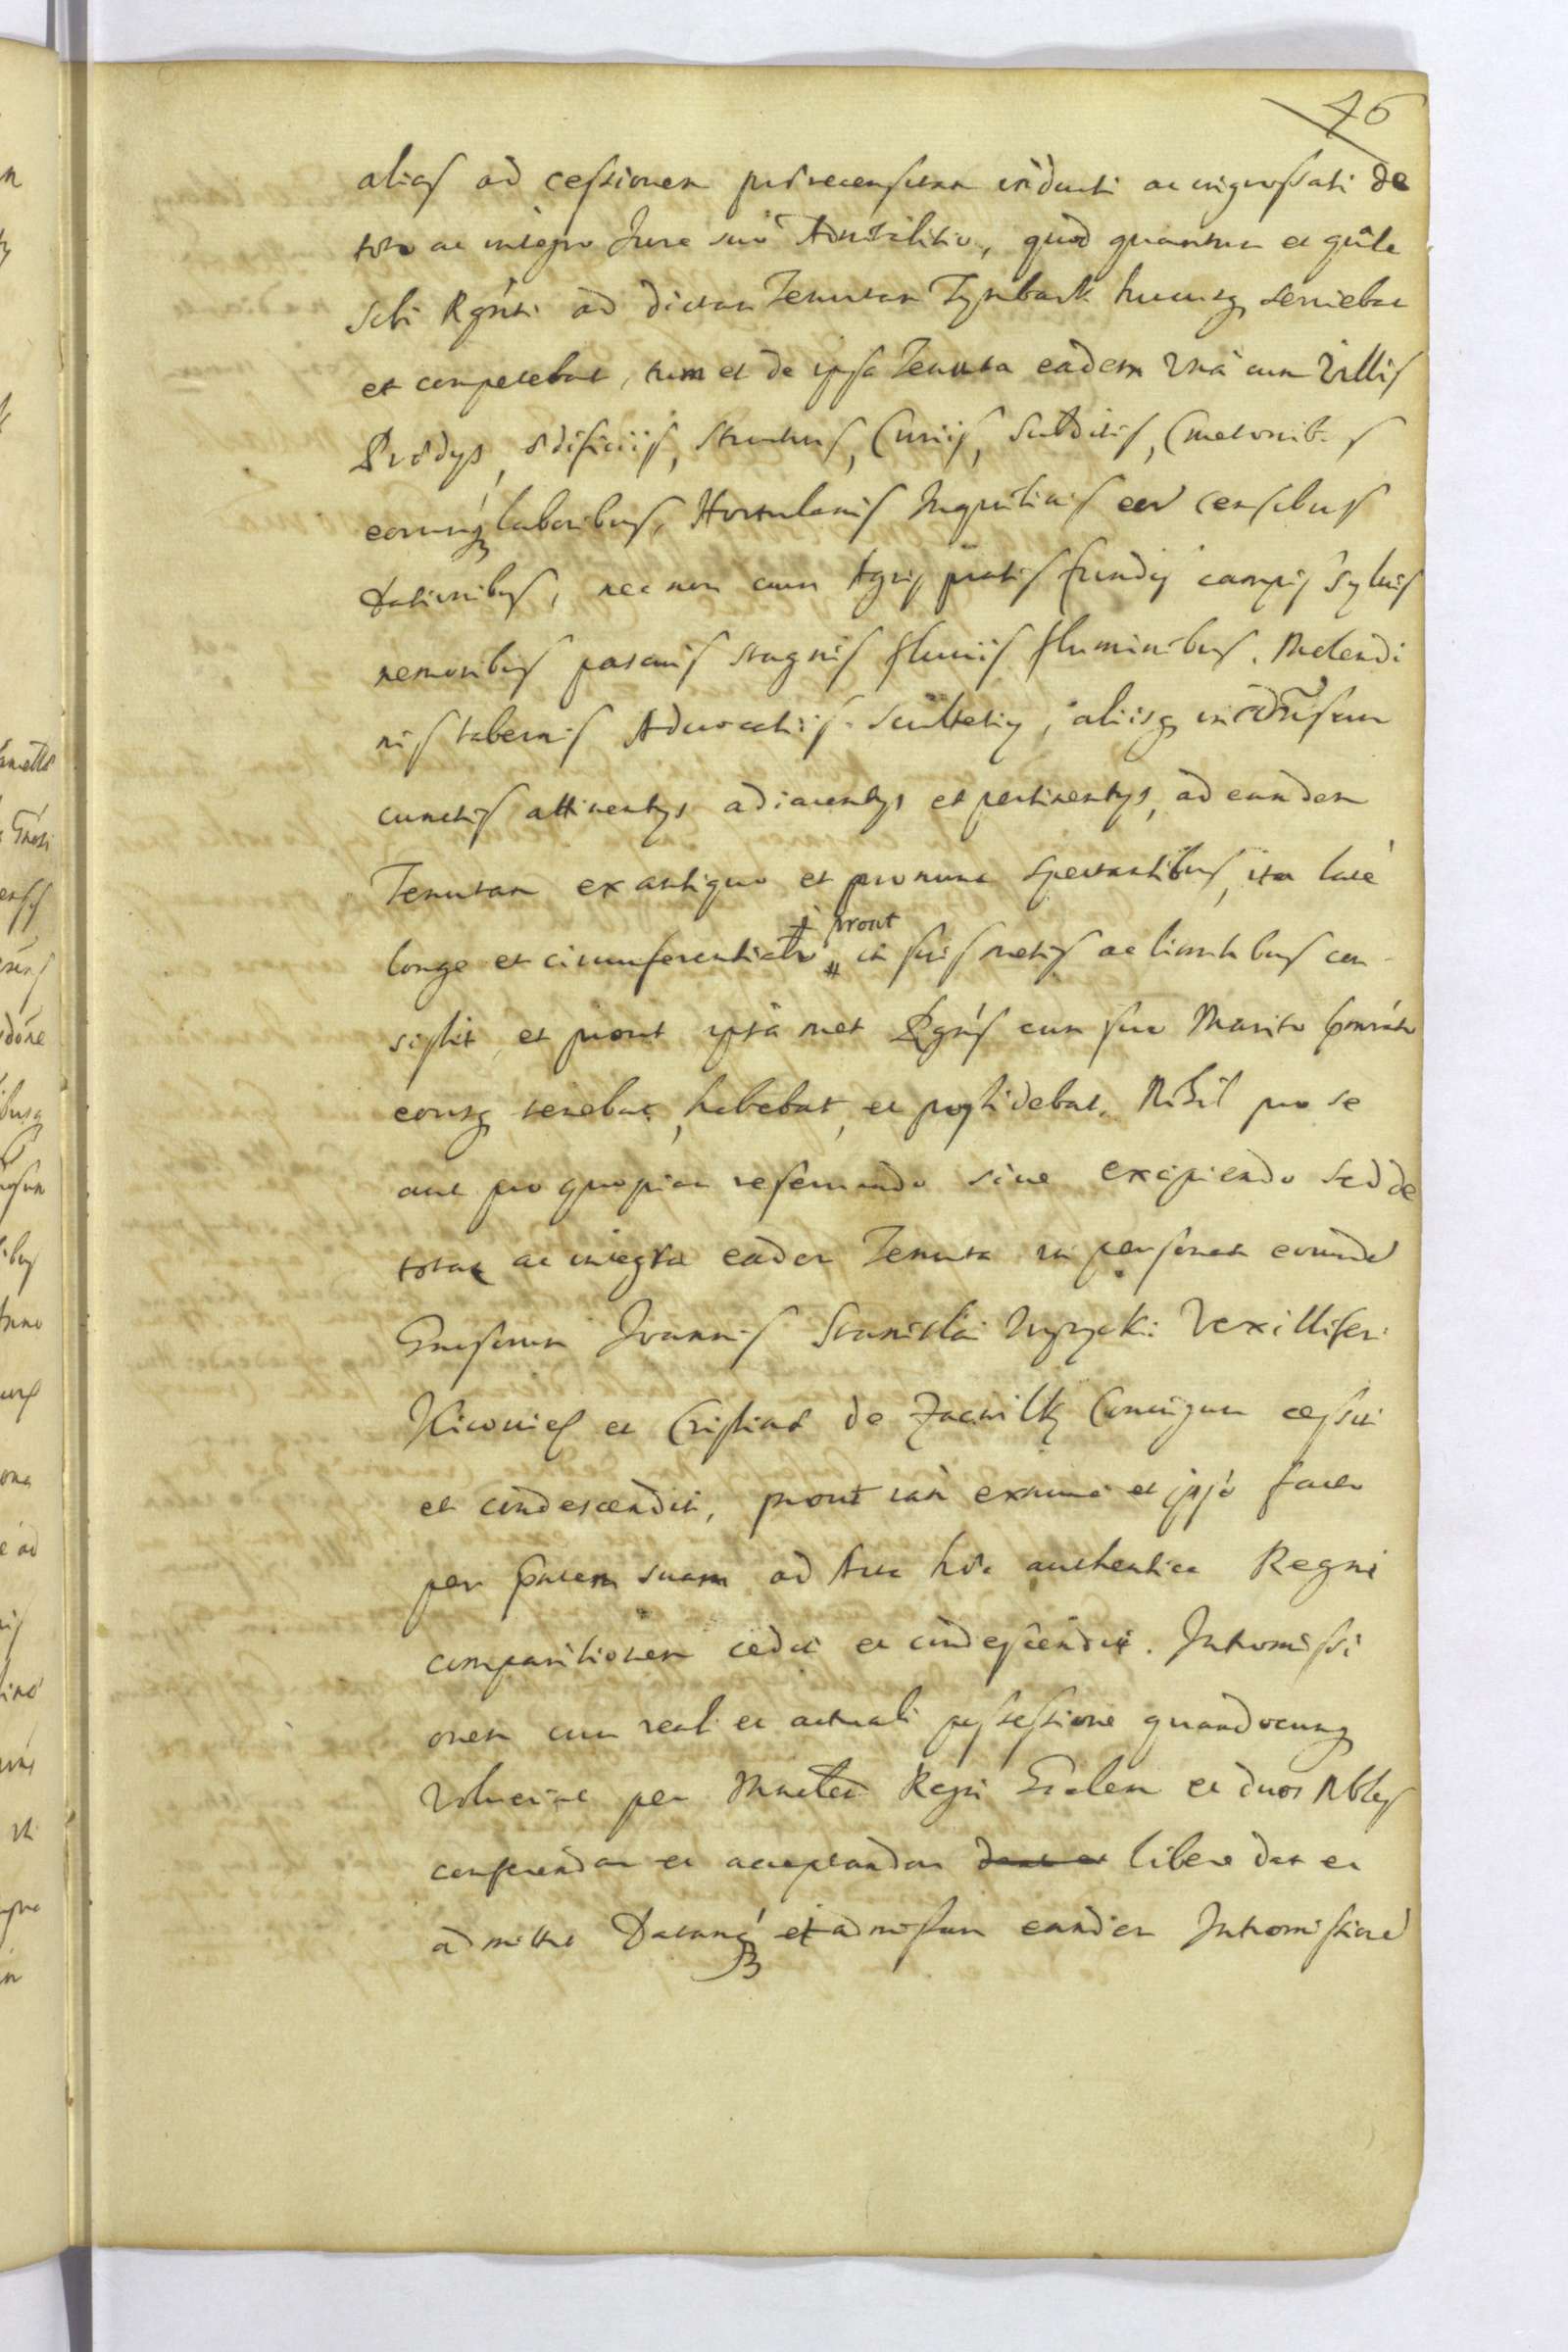 46
alias ad cessionem prӕrecensitam inducti ac ingrossati de
toto ac integro Jure suo Aduitalitio, quod quantum et quale
sibi Rgnti ad dictam Tenutam Tymbark hucusq seruiebat
et competebat, tum et de ipsa Tenuta eadem Vna cum Villis
Prӕdys, ӕdificiis, Structuris, Curiis, Subditis, Cmetonibs
eorumq laboribus, Hortulanis Inquilinis eor censibus
dationibus, nec non cum Agris pratis fundis campis syluis
nemoribus pascuis stagnis fluuiis fluminibus. Molendi
nis tabernis Aduocatiis. Scultetiis, aliisq
cunctis attinentys adiacentys et pertinentys, ad eandem
Tenutam ex antiquo et pro nunc spectantibus, ita latè
longe et circumferentialr prout in suis metis ac limitibus con
sistit et prout ipsa met Rgns cum suo Marito
eousq tenebat, habebat, et possidebat. Nihil pro se
aut pro quopiam reseruando siue excipiendo sed de
tota ac integra eadem Tenuta in personas eorund
Gnosorum Joannis Stanislai Vexilliferi
Kiouien et de Coniugum cessit
et condescendit, prout iam exnunc et ipso facto
per pntem suam ad Acta hӕc authentica Regni
comparitionem cedit et condescendit. Intromissi
onem cum reali et actuali possessione quandocunq
voluerint per Mrlem Regni Gnalem et duos Nbles
conferendam et acceptandam dant et libere dat et
admittit Datamq et admissam eandem Intromissione